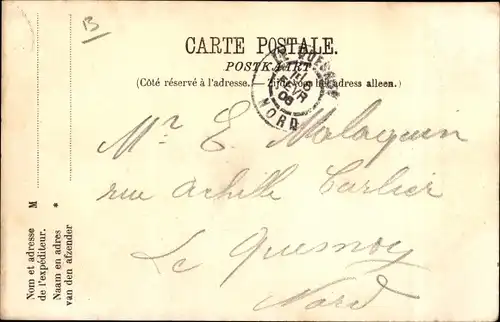 B
CARTE POSTALE.
POSTKAART
(Côté réservé à l'adresse. — Zijde voor het adres alleen.)
LE QUESNOY
FEVR
06
NORD
Mr E. Malaquin
rue Achille Carlier
Le Quesnoy
Nord
M *
Nom et adresse
de l'expéditeur.
Naam en adres
van den afzender